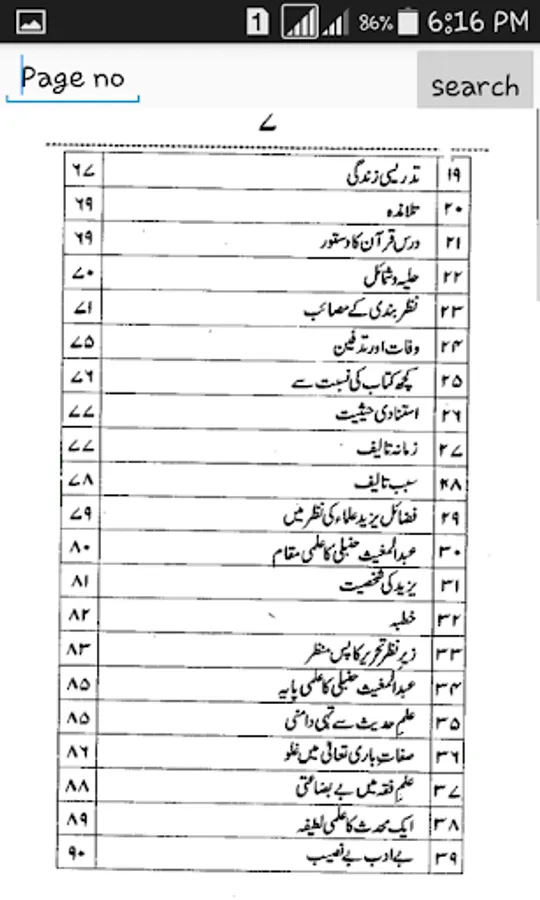 1 86% 6:16 PM
Page no search
۷
۱۹ تدریسی زندگی ۶۷
۲۰ تلامذہ ۶۹
۲۱ درس قرآن کا دستور ۶۹
۲۲ حلیہ و شمائل ۷۰
۲۳ نظر بندی کے مصائب ۷۱
۲۴ وفات اور تدفین ۷۵
۲۵ کچھ کتاب کی نسبت سے ۷۶
۲۶ استنادی حیثیت ۷۷
۲۷ زمانہ تالیف ۷۷
۲۸ سبب تالیف ۷۸
۲۹ فضائل یزید علماء کی نظر میں ۷۹
۳۰ عبدالمغیث حنبلی کا علمی مقام ۸۰
۳۱ یزید کی شخصیت ۸۱
۳۲ خطبہ ۸۲
۳۳ زیر نظر تحریر کا پس منظر ۸۳
۳۴ عبدالمغیث حنبلی کا علمی پایہ ۸۵
۳۵ علم حدیث سے تہی دامنی ۸۵
۳۶ صفات باری تعالیٰ میں غلو ۸۶
۳۷ علم فقہ میں بے بضاعتی ۸۸
۳۸ ایک محدث کا علمی لطیفہ ۸۹
۳۹ بے ادب بے نصیب ۹۰